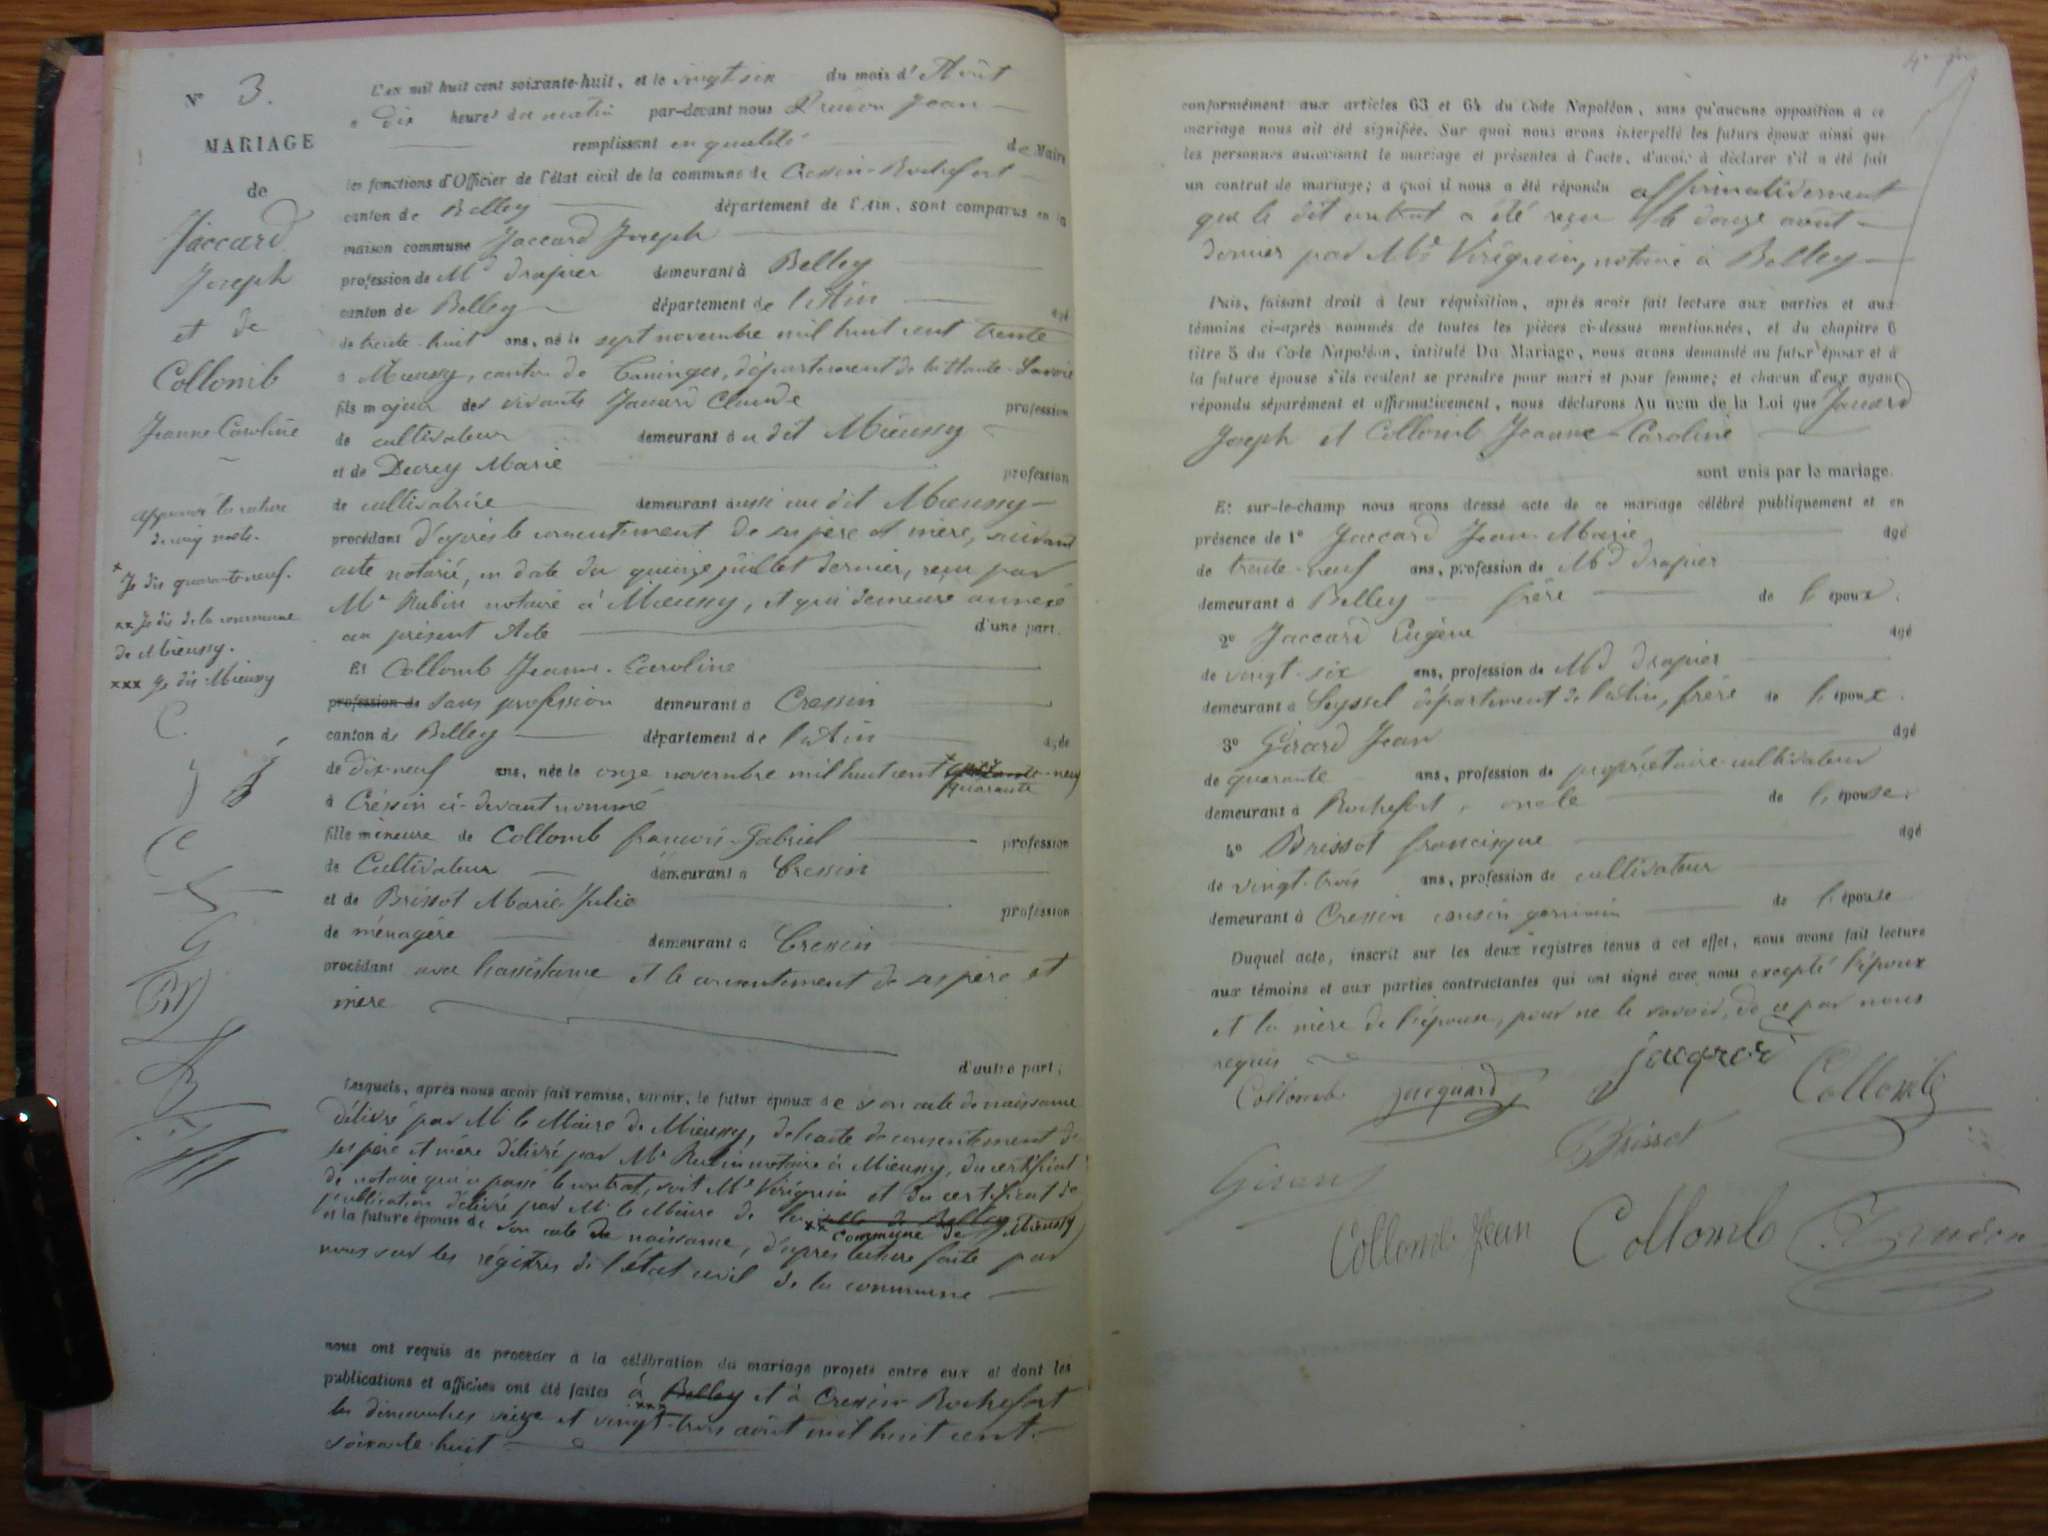 N° 3.
MARIAGE
de
Jaccard
Joseph
et de
Collomb
Jeanne Caroline
approuvé la rature
de cinq mots.
x Je dis quarante-neuf.
xx Je dis de la commune
de Mieussy.
xxx Je dis Mieussy
L'an mil huit cent soixante-huit, et le vingt six du mois d'Août
à dix heures du matin par-devant nous Jean
remplissant en qualité de Maire
les fonctions d'Officier de l'état civil de la commune de Cressin-Rochefort
canton de Belley département de l'Ain, sont comparus en la
maison commune Jaccard Joseph
profession de Md drapier demeurant à Belley
canton de Belley département de l'Ain âgé
de trente-huit ans, né le sept novembre mil huit cent trente
à Mieussy, canton de Taninges, département de la Haute-Savoie
fils majeur des vivants Jaccard Claude profession
de cultivateur demeurant au dit Mieussy
et de Decrey Marie profession
de cultivatrice demeurant aussi au dit Mieussy
procédant d'après le consentement de ses père et mère, suivant
acte notarié, en date du quinze juillet dernier, reçu par
Me Rubin notaire à Mieussy, et qui demeure annexé
au présent Acte d'une part.
Et Collomb Jeanne-Caroline
profession de sans profession demeurant à Cressin
canton de Belley département de l'Ain âgée
de dix-neuf ans, née le onze novembre mil huit cent x quarante-neuf
à Cressin ci-devant nommé
fille mineure de Collomb françois-Gabriel profession
de Cultivateur demeurant à Cressin
et de Brissot Marie-Julie profession
de ménagère demeurant à Cressin
procédant avec l'assistance et le consentement de ses père et
mère
d'autre part;
Lesquels, après nous avoir fait remise, savoir, le futur époux de son acte de naissance
délivré par Mr le Maire de Mieussy, de l'acte de consentement de
ses père et mère délivré par Me Rubin notaire à Mieussy, du certificat
de notaire qui a passé le contrat, soit Me Viréguin et du certificat de
publication délivré par Mr le Maire de la xx ville de Belley commune de Mieussy
et la future épouse de son acte de naissance, d'après lecture faite par
nous sur les régistres de l'état civil de la commune
nous ont requis de procéder à la célébration du mariage projeté entre eux et dont les
publications et affiches ont été faites à Belley xxx et à Cressin-Rochefort
les dimanches seize et vingt-trois août mil huit cent
soixante-huit
conformément aux articles 63 et 64 du Code Napoléon, sans qu'aucune opposition à ce
mariage nous ait été signifiée. Sur quoi nous avons interpellé les futurs époux ainsi que
les personnes autorisant le mariage et présentes à l'acte, d'avoir à déclarer s'il a été fait
un contrat de mariage; à quoi il nous a été répondu affirmativement
que le dit contrat a été reçu le douze août
dernier par Me Viréguin, notaire à Belley
Puis, faisant droit à leur réquisition, après avoir fait lecture aux parties et aux
témoins ci-après nommés de toutes les pièces ci-dessus mentionnées, et du chapitre 6
titre 5 du Code Napoléon, intitulé Du Mariage, nous avons demandé au futur époux et à
la future épouse s'ils veulent se prendre pour mari et pour femme; et chacun d'eux ayant
répondu séparément et affirmativement, nous déclarons Au nom de la Loi que Jaccard
Joseph et Collomb Jeanne-Caroline
sont unis par le mariage.
Et sur-le-champ nous avons dressé acte de ce mariage célébré publiquement et en
présence de 1° Jaccard Jean-Marie âgé
de trente-neuf ans, profession de Md drapier
demeurant à Belley frère de l'époux.
2° Jaccard Eugène âgé
de vingt-six ans, profession de Md drapier
demeurant à Seyssel département de l'Ain, frère de l'époux.
3° Girard Jean âgé
de quarante ans, profession de propriétaire-cultivateur
demeurant à Rochefort, oncle de l'épouse.
4° Brissot francisque âgé
de vingt-trois ans, profession de cultivateur
demeurant à Cressin cousin germain de l'épouse
Duquel acte, inscrit sur les deux registres tenus à cet effet, nous avons fait lecture
aux témoins et aux parties contractantes qui ont signé avec nous excepté l'époux
et la mère de l'épouse, pour ne le savoir, de ce par nous
requis
Collomb Jacquard jacqrd Collomb
Brissot
Girard
Collomb Jean Collomb